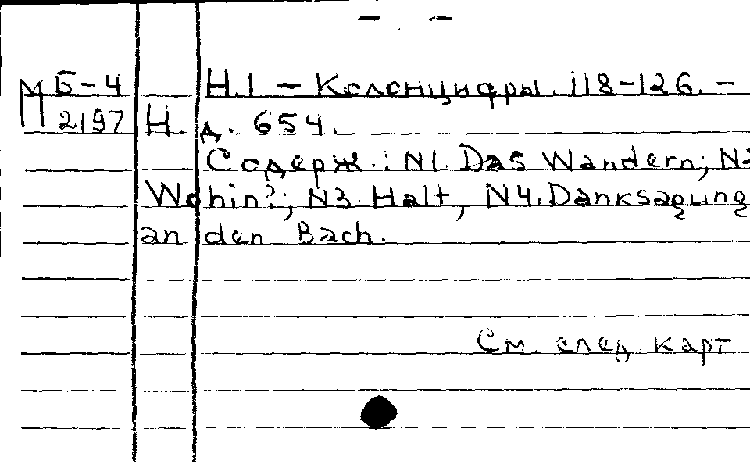 — —
М Б-4 Н.1 — Колонцифры. 118-126. —
П 2197 Н. д. 654.
Содерж.: N1. Das Wandern; N2
Wohin?; N3. Halt, N4. Danksagung
an den Bach.
См. след карт